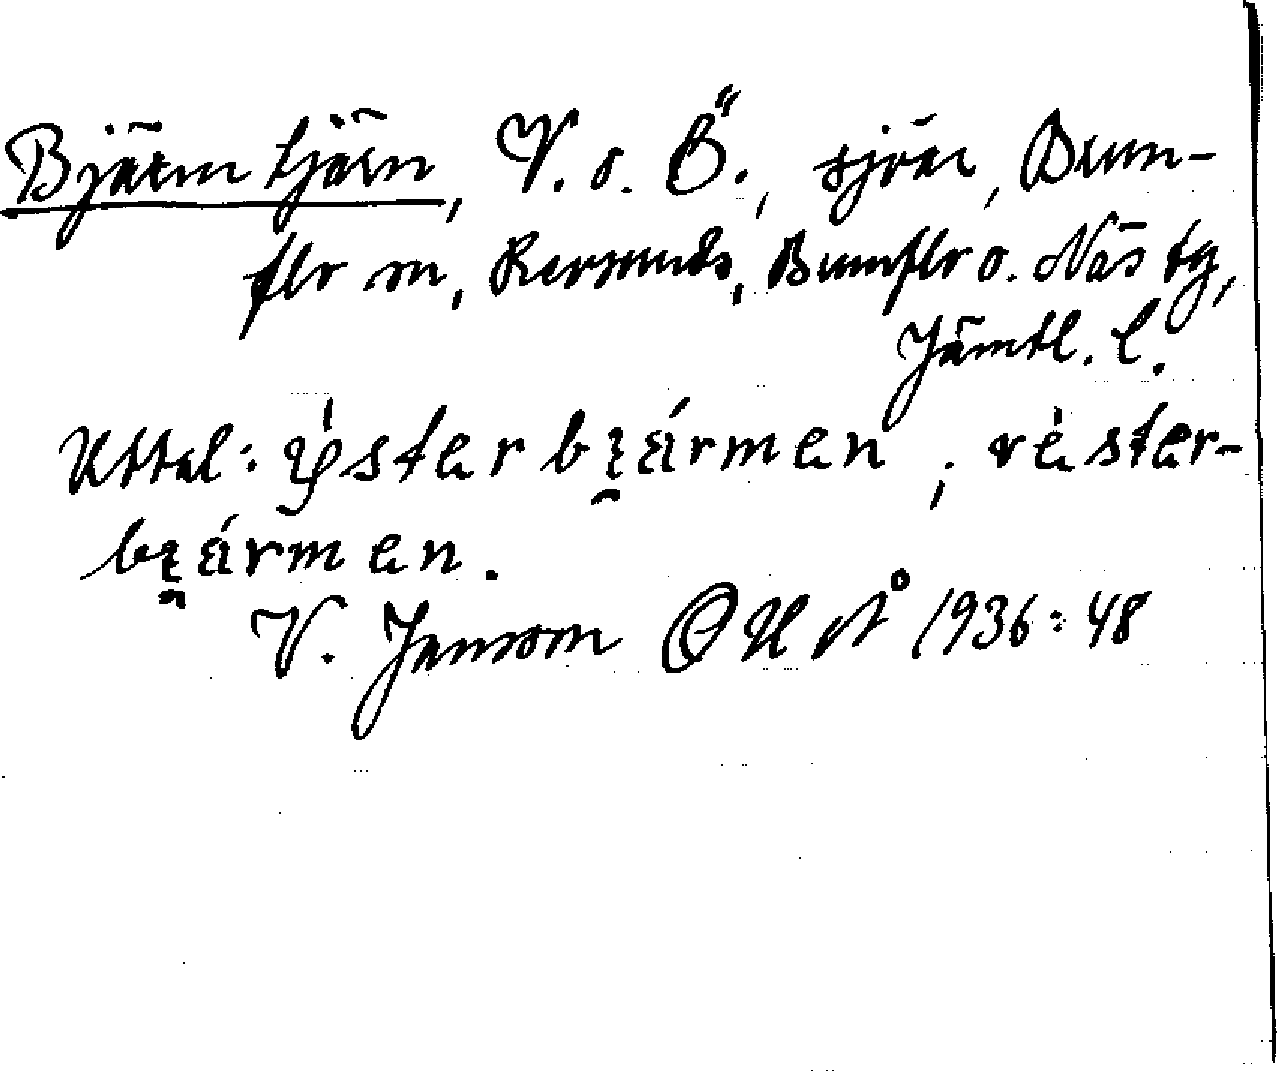 Bjärmtjärn, V. o. Ö., sjöar, Brun-
flo sn, Revsunds, Brunflo o. Näs tg,
Jämtl. l.
Uttal: ỳster bi̯ármen, vèster-
bi̯ármen.
V. Jansson OUÅ 1936:48